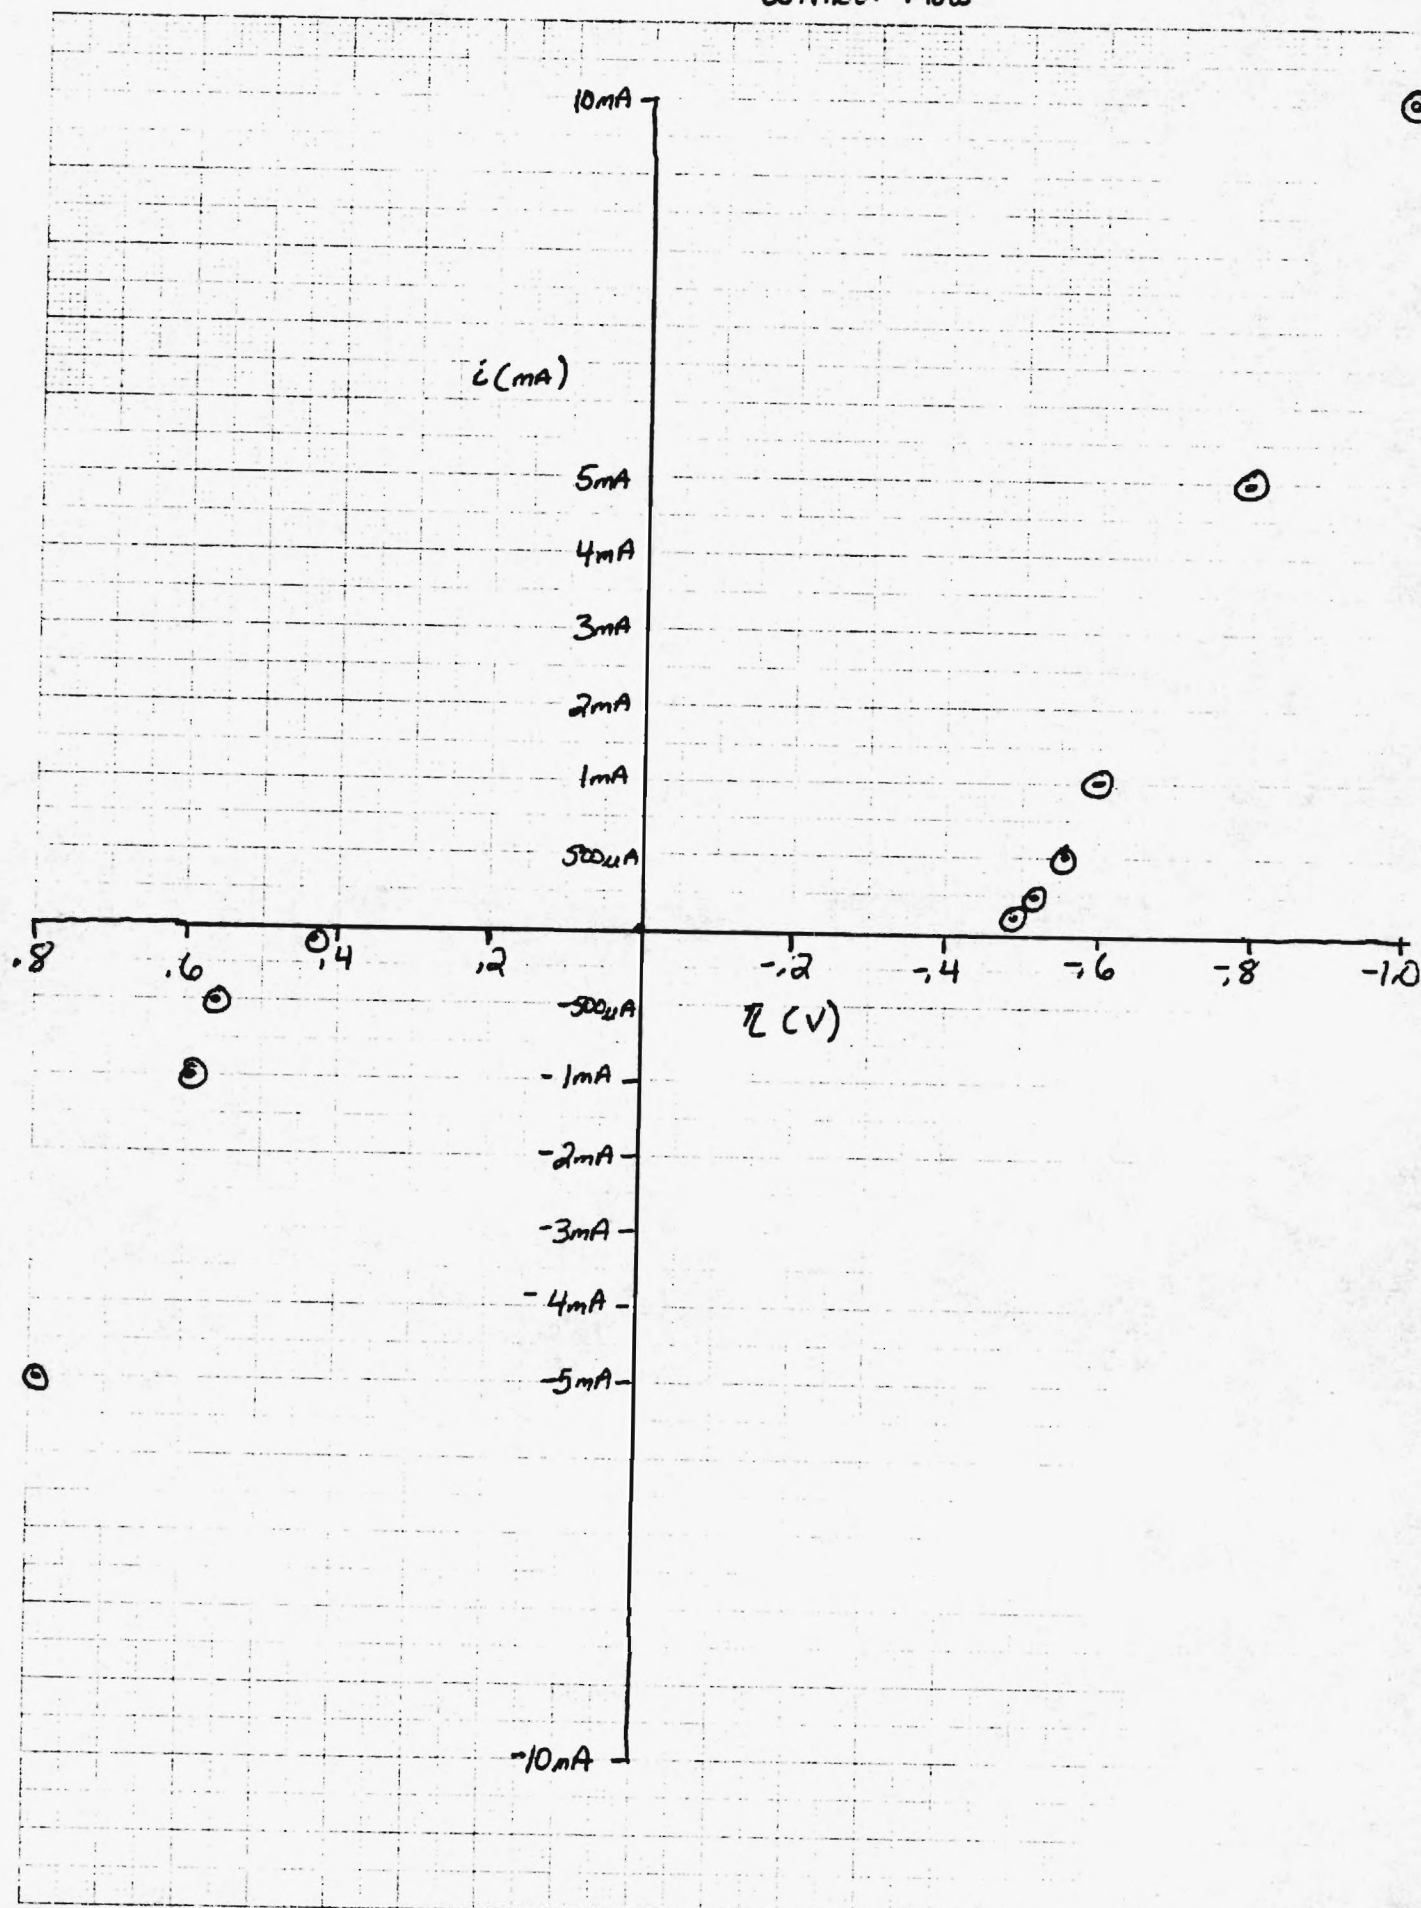 10mA
i(mA)
5mA
4mA
3mA
2mA
1mA
500μA
.8 .6 .4 .2 -.2 -.4 -.6 -.8 -1.0
-500μA
η (V)
-1mA
-2mA
-3mA
-4mA
-5mA
-10mA